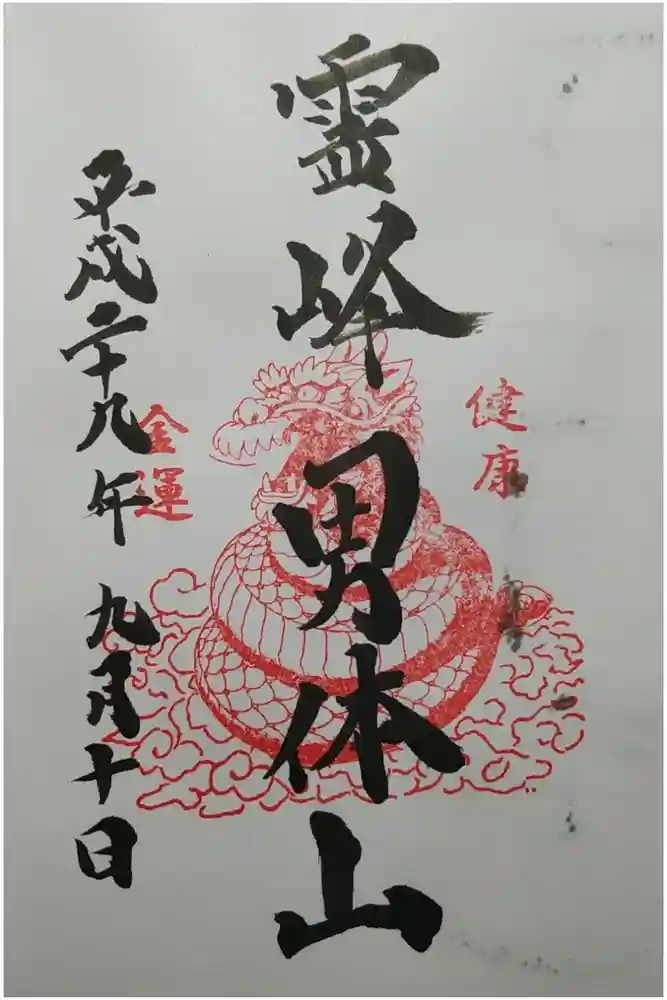 健康
霊峰男体山
金運
平成二十八年九月十日